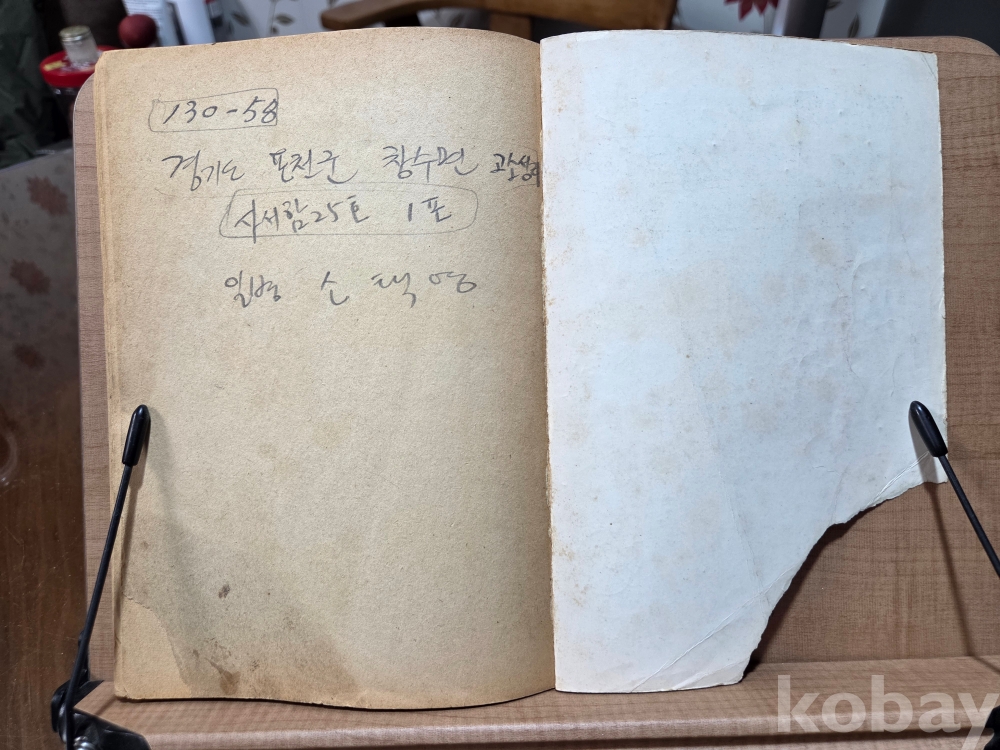 130-58
경기도 포천군 창수면 고소성리
사서함25호 1포
일병 손 택영
kobay